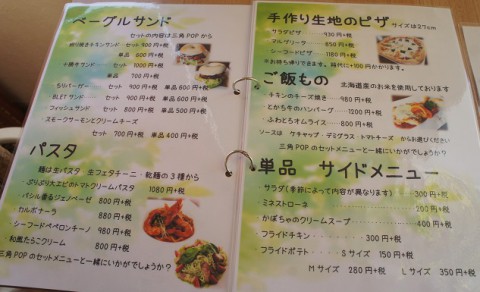 ベーグルサンド
セットの内容は三角POPから
セット 900円+税
単品 600円+税
ト焼サンド セット 1000円+税
単品 700円+税
Sリバーガー セット 900円+税 単品 600円+税
BLETサンド セット 800円+税 単品 500円+税
フィッシュサンド セット 800円+税 単品 500円+税
スモークサーモンとクリームチーズ
セット 700円+税 単品 400円+税
パスタ
麺は生パスタ 生フェタチーニ・乾麺の3種から
ぷりぷり大エビのトマトクリームパスタ
1080円+税
バジル香るジェノベーゼ 800円+税
カルボナーラ 880円+税
シーフードペペロンチーノ 980円+税
和風たらこクリーム 800円+税
三角POPのセットメニューと一緒にいかがでしょうか?
手作り生地のピザ サイズは27cm
サラダピザ 930円+税
マルゲリータ 850円+税
シーフードピザ 1180円+税
※お持ち帰りできます。箱代に+100円かかります。
ご飯もの 北海道産のお米を使用しております
チキンのチーズ焼き 980円+税
とかち牛のハンバーグ 1200円+税
ふわとろオムライス 800円+税
ソースは ケチャップ・デミグラス・トマトチーズ からお選びください
三角POPのセットメニューと一緒にいかがでしょうか?
単品 サイドメニュー
サラダ(季節によって内容が異なります) 300円+税
ミネストローネ 300円+税
かぼちゃのクリームスープ 400円+税
フライドチキン 300円+税
フライドポテト Sサイズ 150円+税
Mサイズ 280円+税 Lサイズ 350円+税